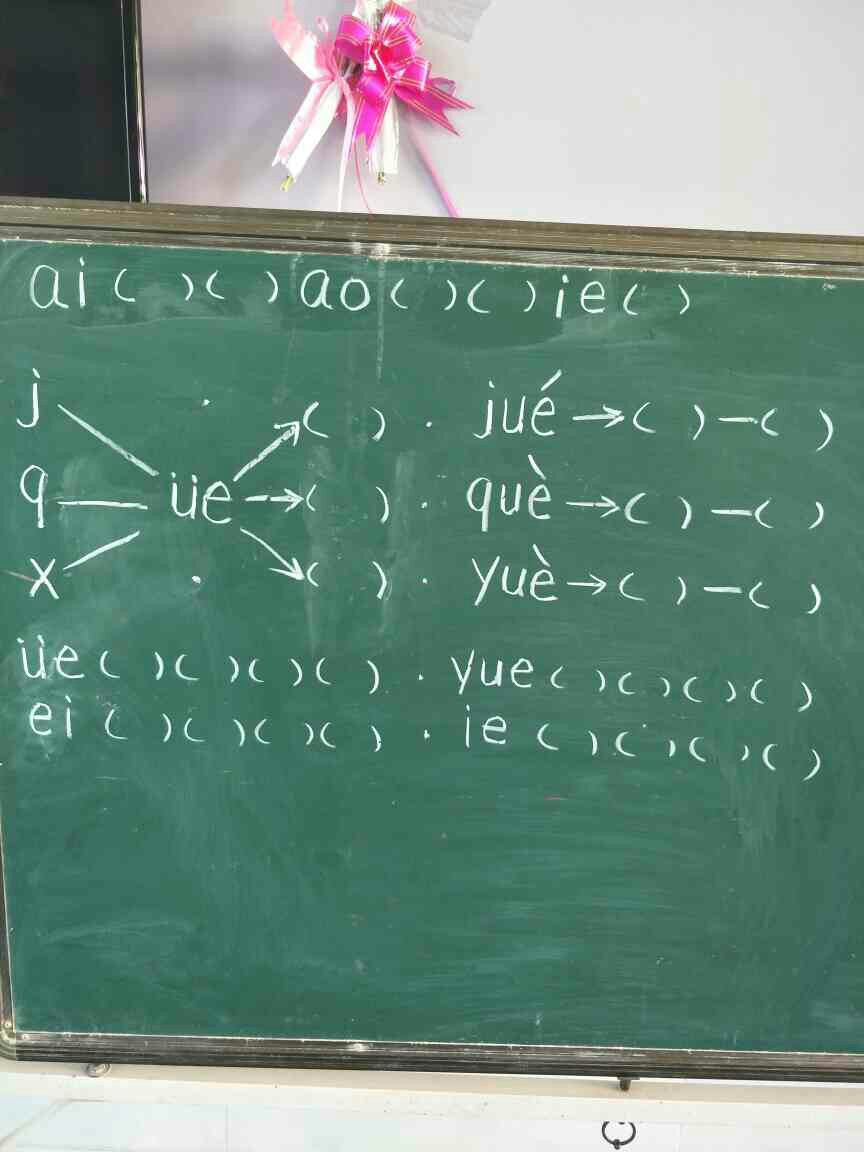 ai( )( )ao( )( )ie( )
j →( ) · jué→( )—( )
q — üe →( ) · què→( )—( )
x →( ) · yuè→( )—( )
üe( )( )( )( ) · yue( )( )( )( )
ei( )( )( )( ) · ie( )( )( )( )